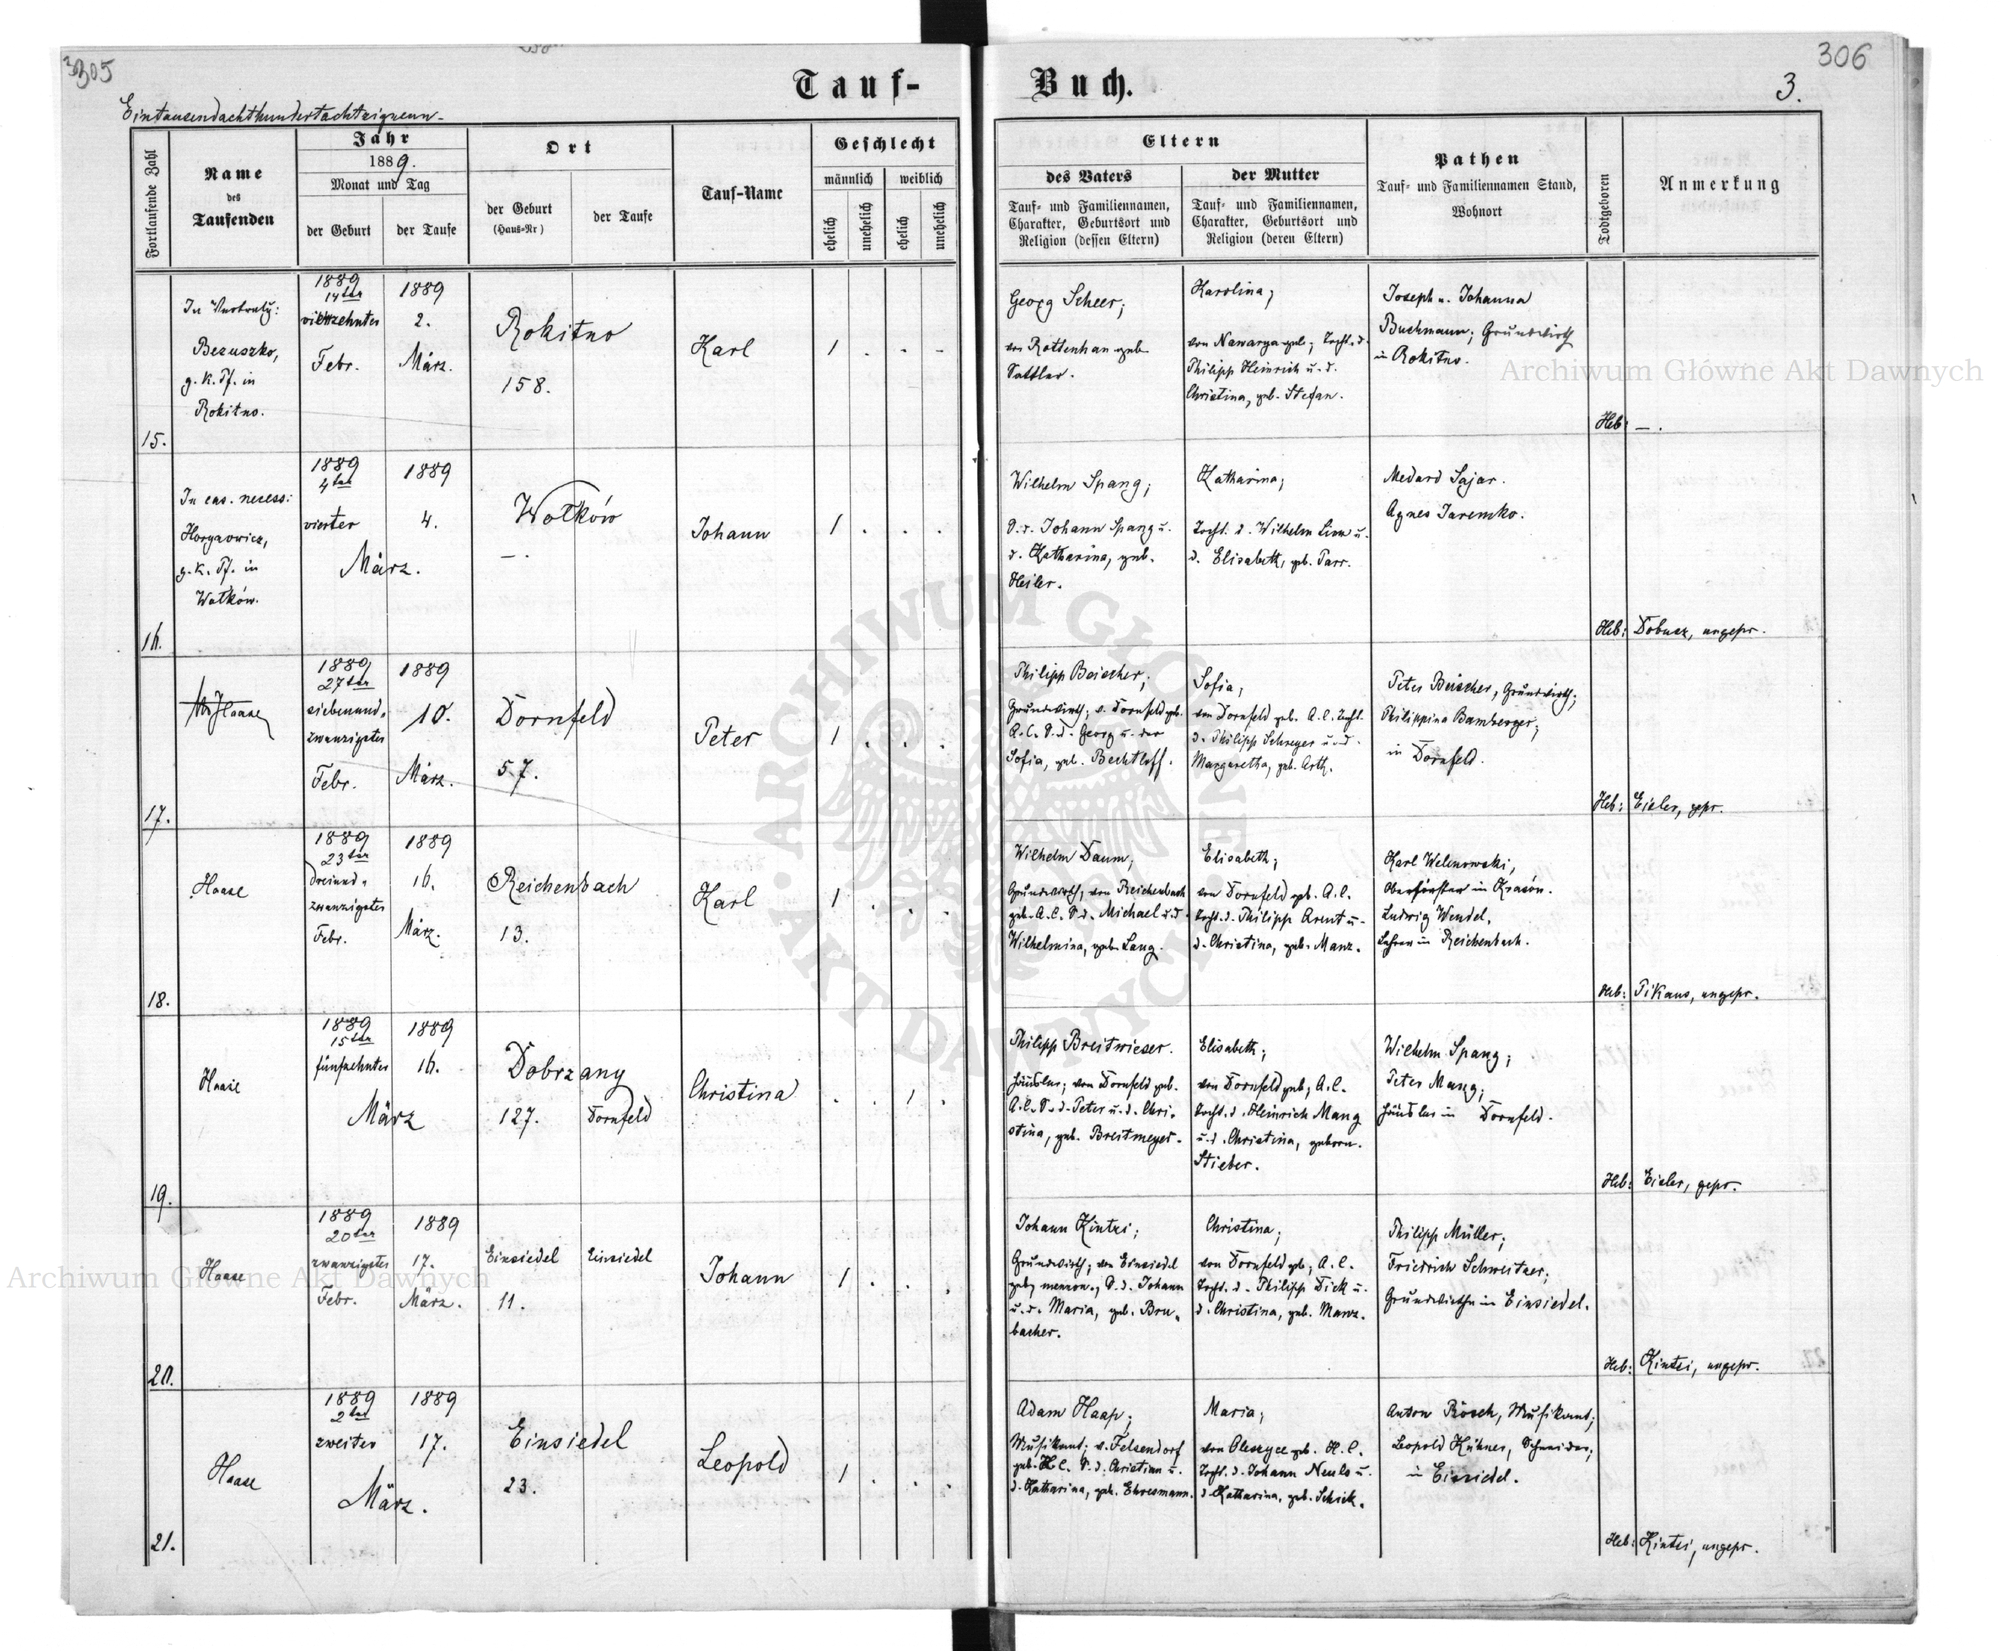 305
306
Tauf-
Buch.
3.
Eintausendachthundertachtzigneun-
Fortlaufende Zahl
Name
des
Taufenden
Jahr
1889.
Monat und Tag
der Geburt
der Taufe
Ort
der Geburt
(Haus-Nr)
der Taufe
Tauf-Name
Geschlecht
männlich
weiblich
ehelich
unehelich
ehelich
unehelich
Eltern
des Vaters
Tauf- und Familiennamen,
Charakter, Geburtsort und
Religion (dessen Eltern)
der Mutter
Tauf- und Familiennamen,
Charakter, Geburtsort und
Religion (deren Eltern)
Pathen
Tauf- und Familiennamen Stand,
Wohnort
Todtgeboren
Anmerkung
15.
In Vertretg:
Bezuszko,
g. k. Pf. in
Rokitno.
1889
14ter
vierzehnter
Febr.
1889
2.
März.
Rokitno
158.
Karl
1 . . -
Georg Scheer;
von Rottenhan geb.
Sattler.
Karolina;
von Nawarya geb; Tocht. d.
Philipp Heinrich u. d.
Christina, geb. Stefan.
Joseph u. Johanna
Buchmann; Grundwirth
in Rokitno.
Heb: — .
16.
In cas. necess:
g. k. Pf. in
Wołków.
1889
4ter
vierter
1889
4.
März.
Wołków
— .
Johann
1 . . .
Wilhelm Spang;
S. d. Johann Spang u.
d. Katharina, geb.
Heiler.
Katharina;
Tocht. d. Wilhelm Linn u.
d. Elisabeth, geb. Parr.
Medard Sajar.
Agnes Jaremko.
Heb: Dobusz, ungepr.
17.
Haase
1889
27ter
siebenund-
zwanzigster
Febr.
1889
10.
März.
Dornfeld
57.
Peter
1 . . .
Philipp Beischer;
Grundwirth; v. Dornfeld geb.
A. C. S. d. Georg u. der
Sofia, geb. Bechtloff.
Sofia,
von Dornfeld geb. A. C. Tocht.
d. Philipp Schreyer u. d.
Margaretha, geb. Arth.
Peter Beischer, Grundwirth;
Philippina Bamberger;
in Dornfeld.
Heb: Eisler, gepr.
18.
Haase
1889
23ter
dreiund-
zwanzigster
Febr.
1889
16.
März.
Reichenbach
13.
Karl
1 . . .
Wilhelm Daum;
Grundwirth, von Reichenbach
geb. A. C. S. d. Michael u. d.
Wilhelmina, geb. Lang.
Elisabeth;
von Dornfeld geb. A. C.
Tocht. d. Philipp Arent u.
d. Christina, geb. Manz.
Karl Welinowski,
Oberförster in Krasów.
Ludwig Wendel,
Lehrer in Reichenbach.
Heb: Pikaus, ungepr.
19.
Haase
1889
15ter
fünfzehnter
1889
16.
März
Dobrzany
127. Dornfeld
Christina
. . 1 .
Philipp Breitwieser.
Häusler; von Dornfeld geb.
A. C. S. d. Peter u. d. Chri-
stina, geb. Breitmeyer.
Elisabeth;
von Dornfeld geb; A. C.
Tocht. d. Heinrich Mang
u. d. Christina, geborn.
Stieber.
Wilhelm Spang;
Peter Mang;
Häusler in Dornfeld.
Heb: Eisler, gepr.
20.
Haase
1889
20ter
zwanzigster
Febr.
1889
17.
März.
Einsiedel Einsiedel
11.
Johann
1 . . .
Johann Kintzi;
Grundwirth; von Einsiedel
geb; mennon., S. d. Johann
u. d. Maria, geb. Bru-
bacher.
Christina;
von Dornfeld gb; A. C.
Tocht. d. Philipp Dick u.
d. Christina, geb. Manz.
Philipp Müller;
Friedrich Schweitzer;
Grundwirthe in Einsiedel.
Heb: Kintzi, ungepr.
21.
Haase
1889
2ter
zweiter
1889
17.
März.
Einsiedel
23.
Leopold
1 . . .
Adam Haap;
Musikant; v. Felsendorf
geb. H. C. S. d. Christian u.
d. Katharina, geb. Ehresmann.
Maria;
von Oleszyce geb. H. C.
Tocht. d. Johann Neuls u.
d. Katharina, geb. Schick.
Anton Rösch, Musikant;
Leopold Kühner, Schneider;
in Einsiedel.
Heb: Kintzi, ungepr.
Archiwum Główne Akt Dawnych
Archiwum Główne Akt Dawnych
ARCHIWUM GŁÓWNE AKT DAWNYCH